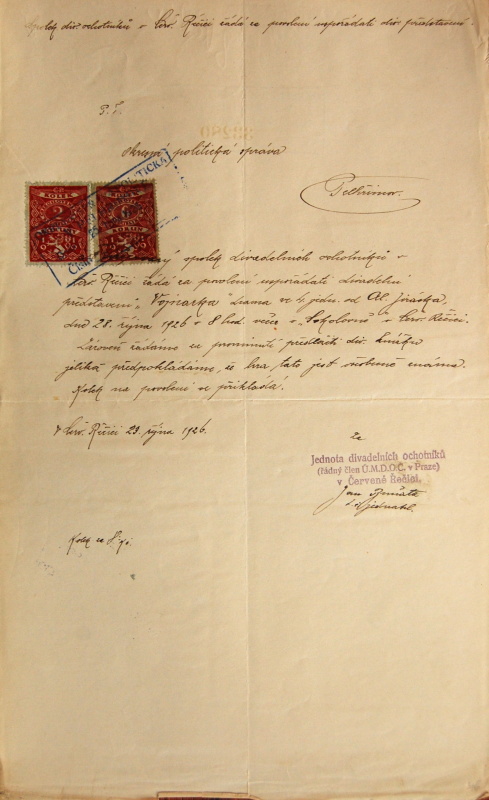 Spolek div. ochotníků v Červ. Řečici žádá za povolení uspořádati div. představení.
P. T.
okresní politická správa
Pelhřimov.
KOLEK
2
spolek divadelních ochotníků v
Červ. Řečici žádá za povolení uspořádati divadelní
představení "Vojnarka" Drama ve 4 jedn. od Al. Jiráska,
dne 28. října 1926 v 8 hod. večer v "Sokolovně" v Červ. Řečici.
Zároveň žádáme za prominutí předložiti div. knížku
jelikož předpokládáme, že hra tato jest osobně známa.
Kolek na povolení se přikládá.
V Červ. Řečici 23. října 1926.
Za
Jednota divadelních ochotníků
(řádný člen Ú.M.D.O.Č. v Praze)
v Červené Řečici.
Jan
t. č. jednatel.
Kolek za 8 Kč.